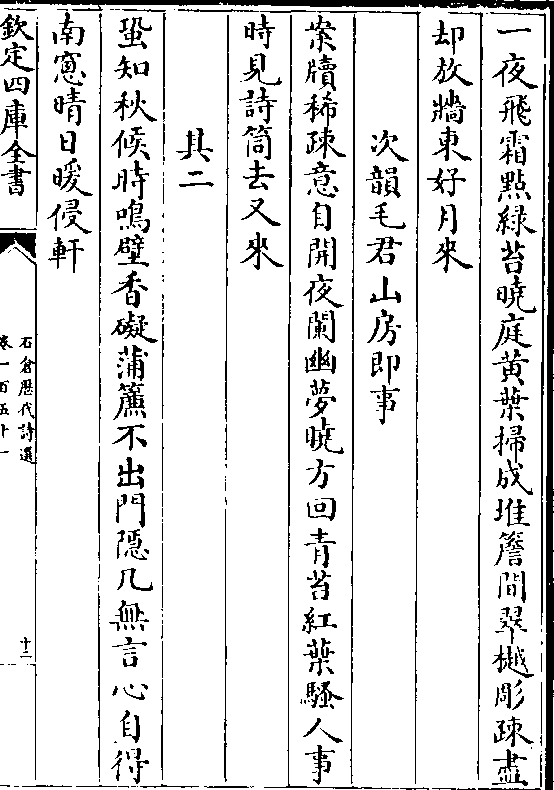 一夜飛霜點綠苔曉庭黄葉掃成堆簷間翠樾彫疎盡
却放牆東好月來
次韻毛君山房即事
案牘稀疎意自開夜闌幽夢曉方回青苔紅葉騷人事
時見詩筒去又來
其二
蛩知秋候時鳴壁香礙蒲簾不出門隱几無言心自得
南窻晴日暖侵軒
欽定四庫全書
石倉歴代詩選
卷一百五十一
十二